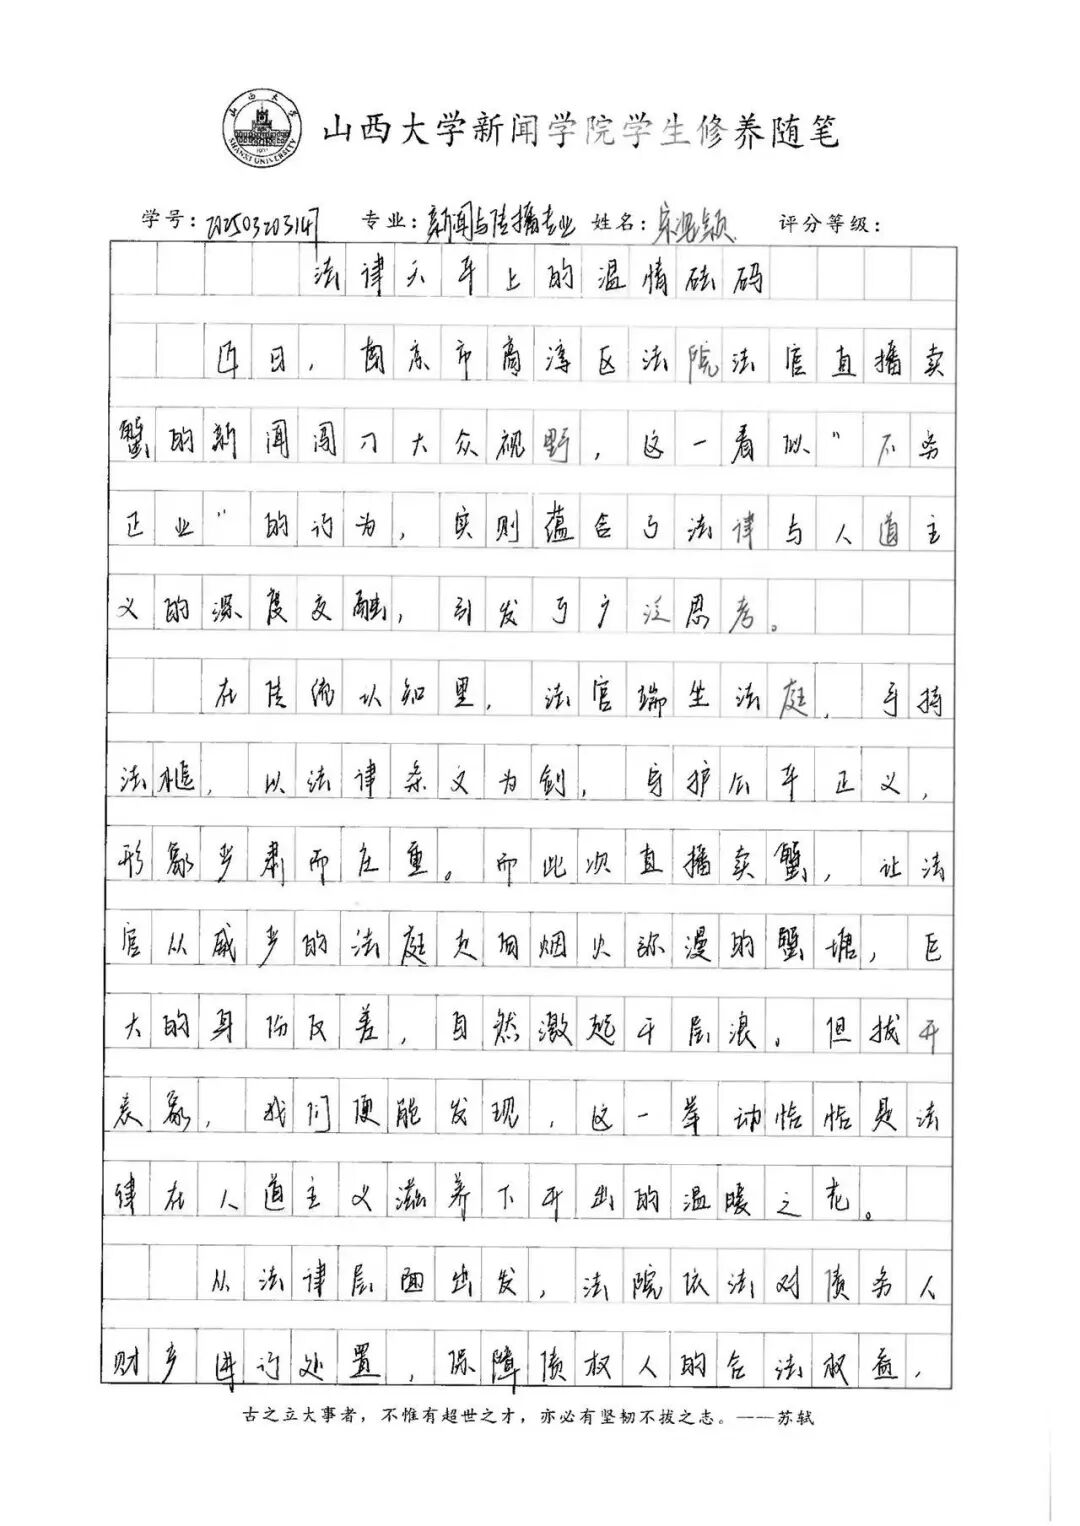 山西大学
SHANXI UNIVERSITY
1902
山西大学新闻学院学生修养随笔
学号：202503203147 专业：新闻与传播专业 姓名：宋 颖 评分等级：
法律天平上的温情砝码
近日，南京市高淳区法院法官直播卖
蟹的新闻闯了大众视野，这一看似“不务
正业”的行为，实则蕴含了法律与人道主
义的深度交融，引发了广泛思考。
在传统认知里，法官端坐法庭，手持
法槌，以法律条文为剑，守护公平正义，
形象严肃而庄重。而此次直播卖蟹，让法
官从威严的法庭走向烟火弥漫的蟹塘，巨
大的身份反差，自然激起千层浪。但拨开
表象，我们便能发现，这一举动恰恰是法
律在人道主义滋养下开出的温暖之花。
从法律层面出发，法院依法对债务人
财产进行处置，保障债权人的合法权益，
古之立大事者，不惟有超世之才，亦必有坚韧不拔之志。——苏轼